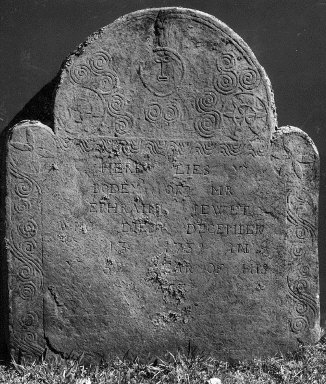 HERE LIES Y
BODEY OF MR
EPHRAIM JEWET
WHO DIED DECEMBER
13 1739 IN
YEAR OF HIS